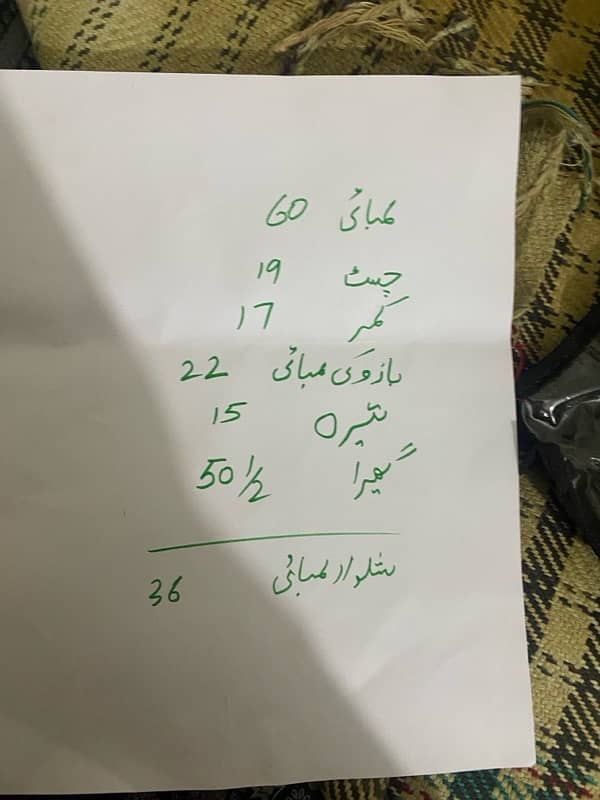 لمبائی 60
چسٹ 19
کمر 17
بازو کی لمبائی 22
تیرہ 15
گھیرا 50 1/2
شلوار لمبائی 36